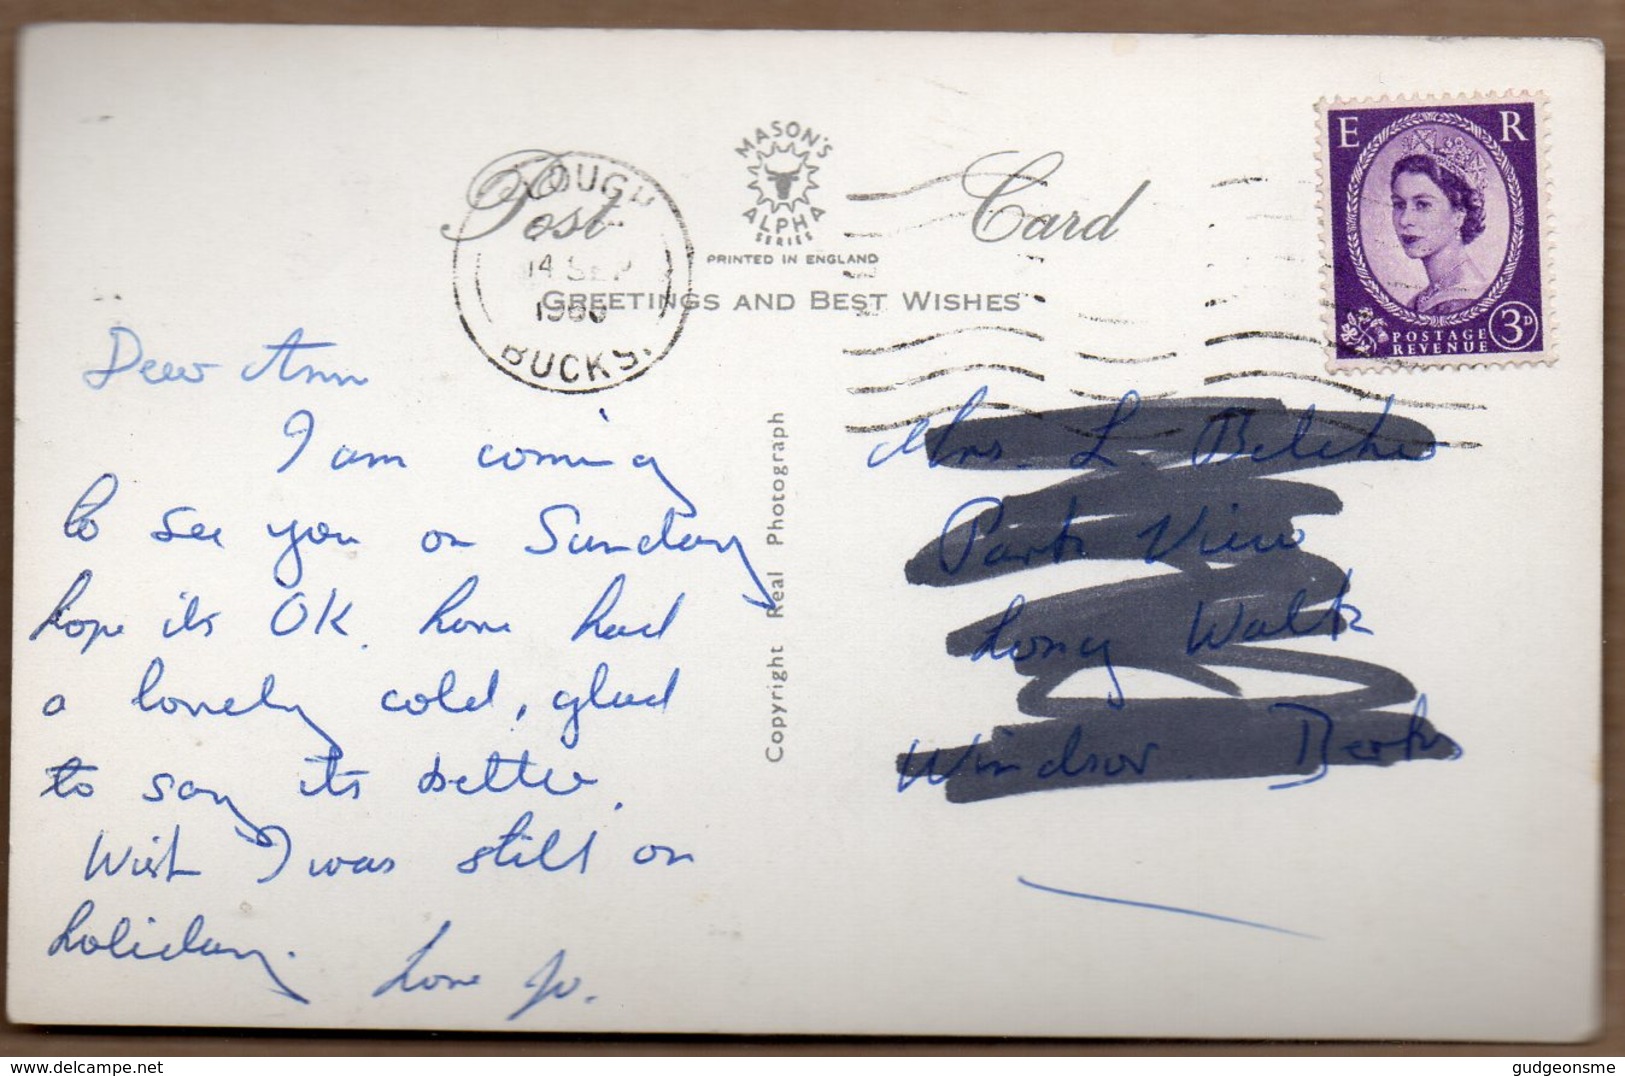 MASON'S
ALPHA
SERIES
Post Card
PRINTED IN ENGLAND
GREETINGS AND BEST WISHES
14 SEP
BUCKS.
E R
POSTAGE
REVENUE
3D
Dear Ann
I am coming
to see you on Sunday
hope its OK. have had
a lovely cold, glad
to say its better.
Wish I was still on
holiday.
Love Jo.
Copyright Real Photograph
Mrs. L. Belcher
Park View
Long Walk
Windsor Berks
gudgeonsme